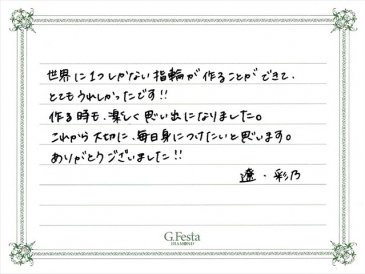 世界に1つしかない指輪が作ることができて、
とてもうれしかったです!!
作る時も、楽しく思い出になりました。
これから大切に、毎日身につけたいと思います。
ありがとうございました!!
遼・彩乃
G.Festa
DIAMOND